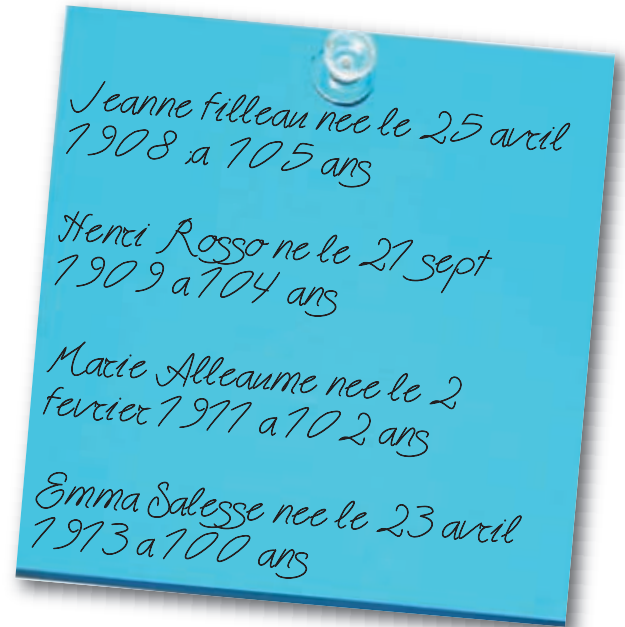 Jeanne filleau nee le 25 avril
1908 ,a 105 ans
Henri Rosso ne le 21 sept
1909 a 104 ans
Marie Alleaume nee le 2
fevrier 1911 a 102 ans
Emma Salesse nee le 23 avril
1913 a 100 ans